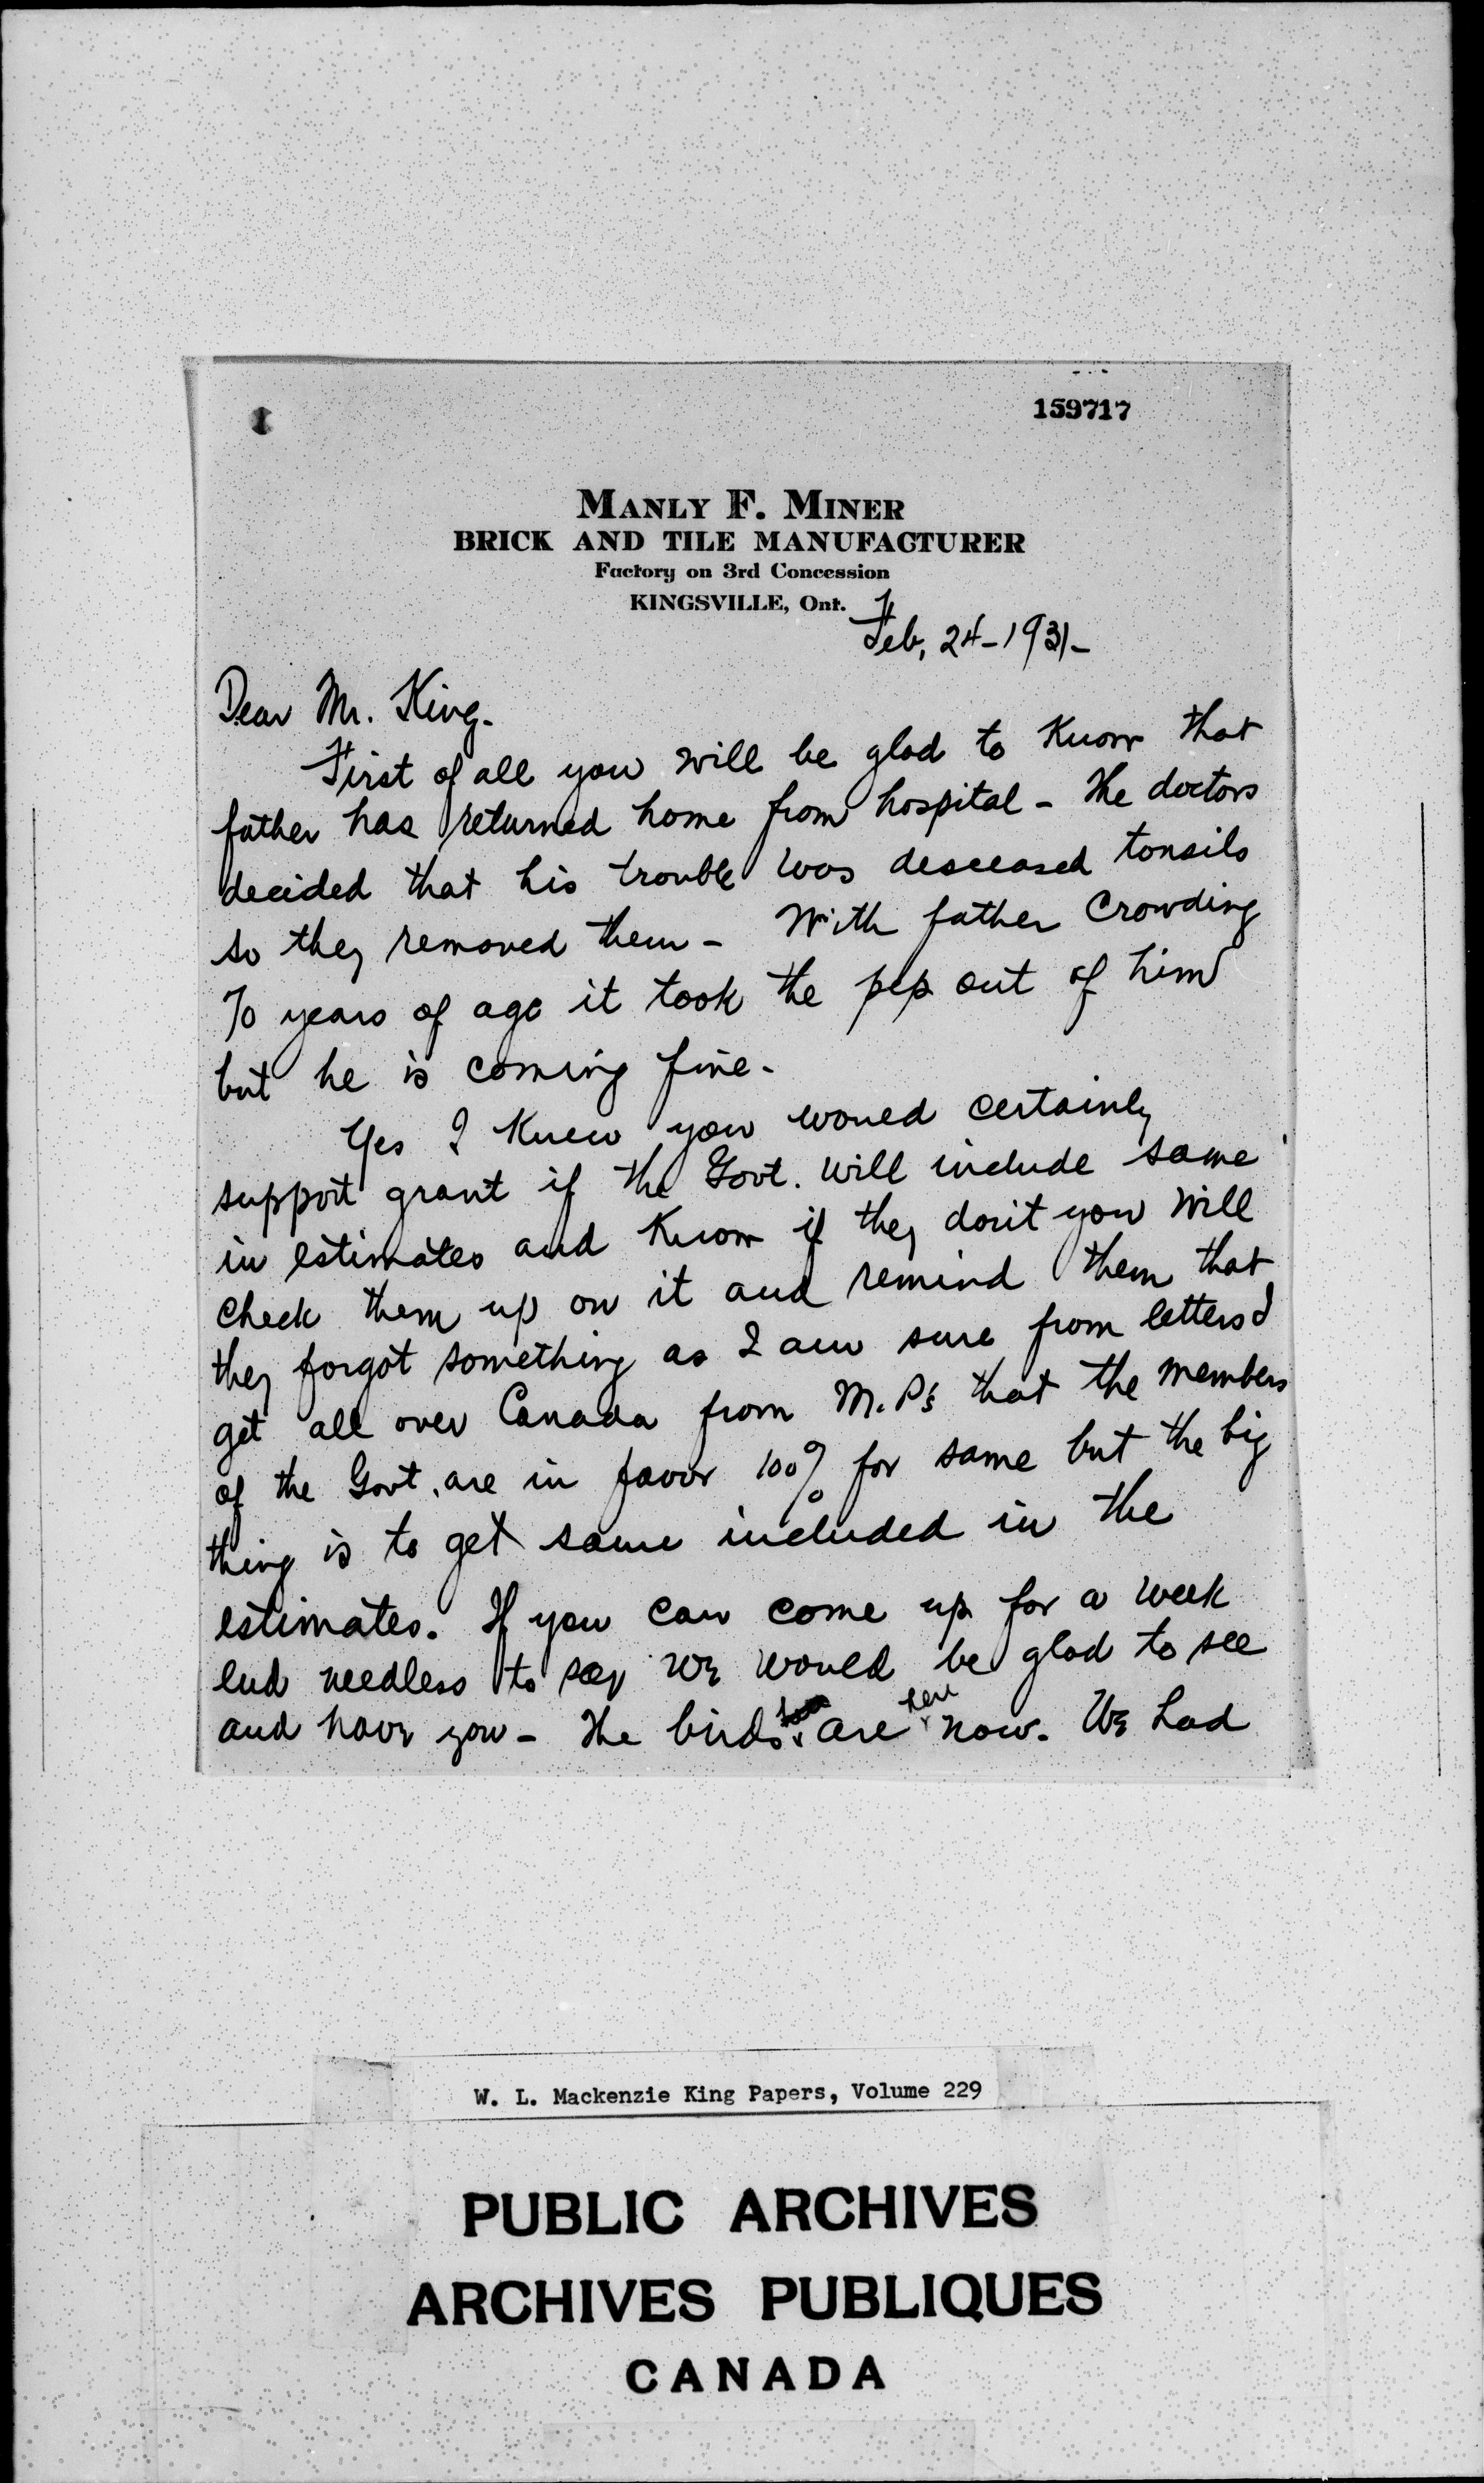 159717
MANLY F. MINER
BRICK AND TILE MANUFACTURER
Factory on 3rd Concession
KINGSVILLE, Ont.
Feb, 24-1931-
Dear Mr. King.
First of all you will be glad to know that
father has returned home from hospital - The doctors
decided that his trouble was desceased tonsils
so they removed them - With father crowding
70 years of age it took the pep out of him
but he is coming fine.
Yes I knew you would certainly
support grant if the Govt. will include same
in estimates and know if they don't you will
check them up on it and remind them that
they forgot something as I am sure from letters I
get all over Canada from M.P's that the members
of the Govt. are in favor 100% for same but the big
thing is to get same included in the
estimates. If you can come up for a week
end needless to say we would be glad to see
and have you - The birds are here now. We had
W. L. Mackenzie King Papers, Volume 229
PUBLIC ARCHIVES
ARCHIVES PUBLIQUES
CANADA